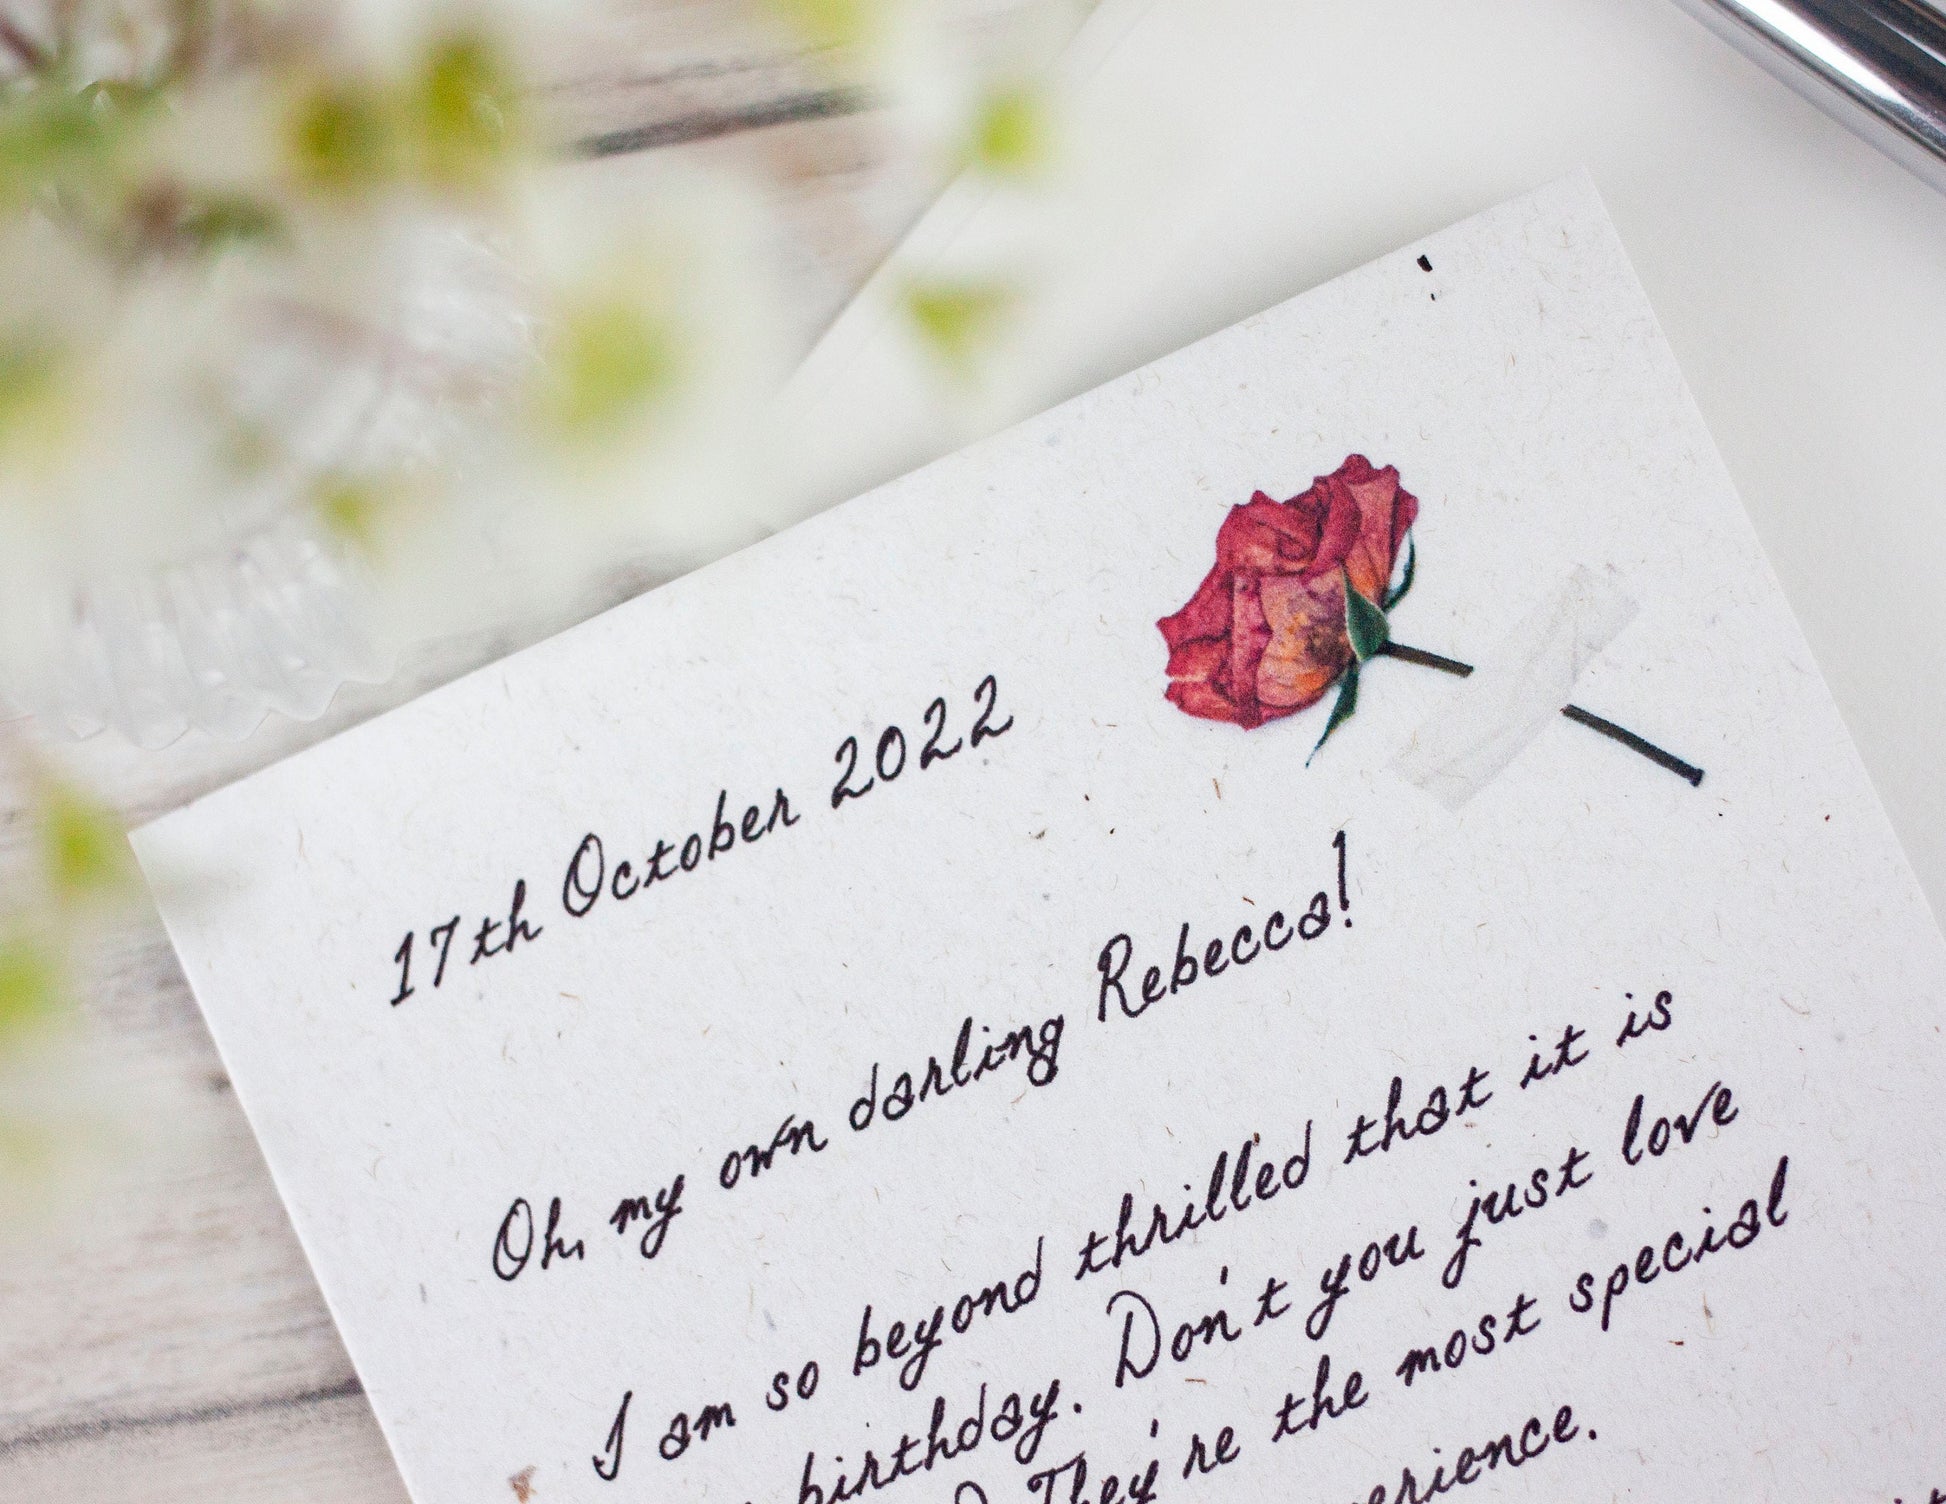 17th October 2022
Oh, my own darling Rebecca!
I am so beyond thrilled that it is
birthday. Don't you just love
They're the most special